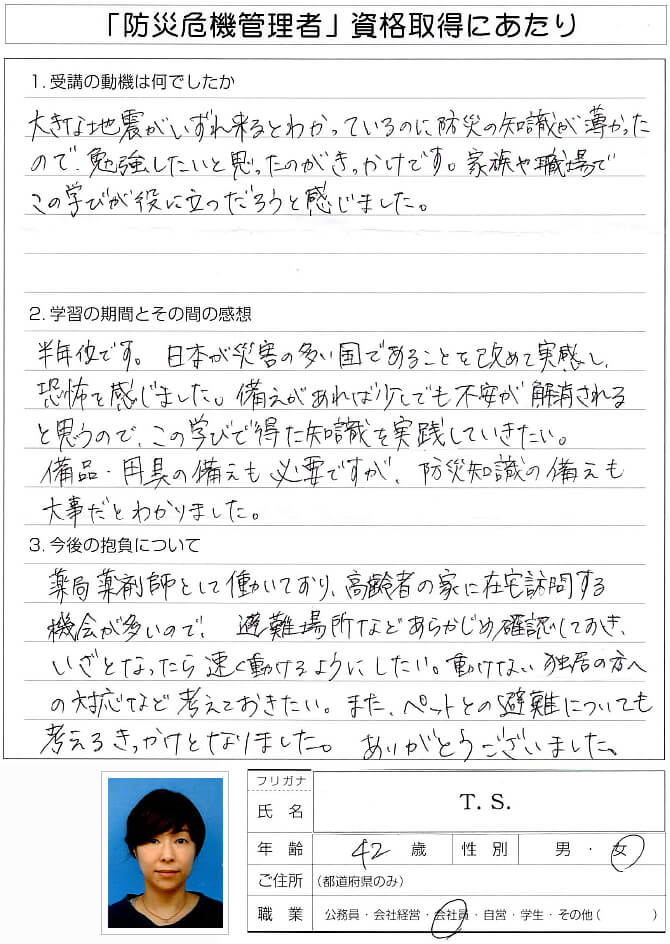 「防災危機管理者」資格取得にあたり
1. 受講の動機は何でしたか
大きな地震がいずれ来るとわかっているのに防災の知識が薄かった
ので、勉強したいと思ったのがきっかけです。家族や職場で
この学びが役に立つだろうと感じました。
2. 学習の期間とその間の感想
半年位です。日本が災害の多い国であることを改めて実感し、
恐怖を感じました。備えがあれば少しでも不安が解消される
と思うので、この学びで得た知識を実践していきたい。
備品・用具の備えも必要ですが、防災知識の備えも
大事だとわかりました。
3. 今後の抱負について
薬局薬剤師として働いており、高齢者の家に在宅訪問する
機会が多いので、避難場所などあらかじめ確認しておき、
いざとなったら速く動けるようにしたい。動けない独居の方へ
の対応など考えておきたい。また、ペットとの避難についても
考えるきっかけとなりました。ありがとうございました。
フリガナ
氏名 T. S.
年齢 42歳 性別 男・女
ご住所 (都道府県のみ)
職業 公務員・会社経営・会社員・自営・学生・その他( )